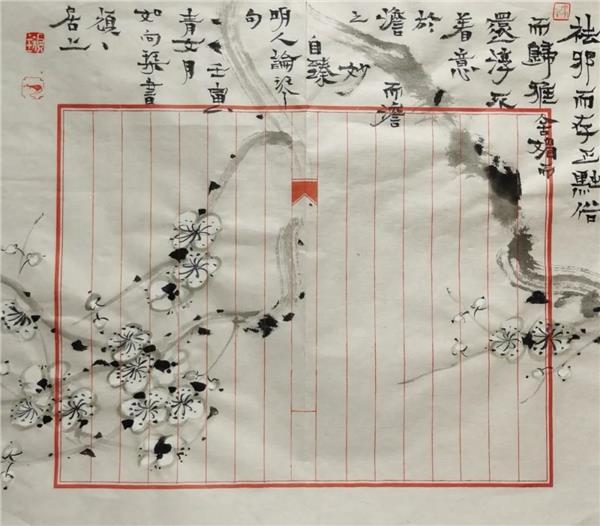 祛邪而存正黜俗
而歸雅舍媚而
還淳不
着意
於
澹而澹
之妙
自臻
明人論琴
句
壬寅
青女月
如句琴書
居上